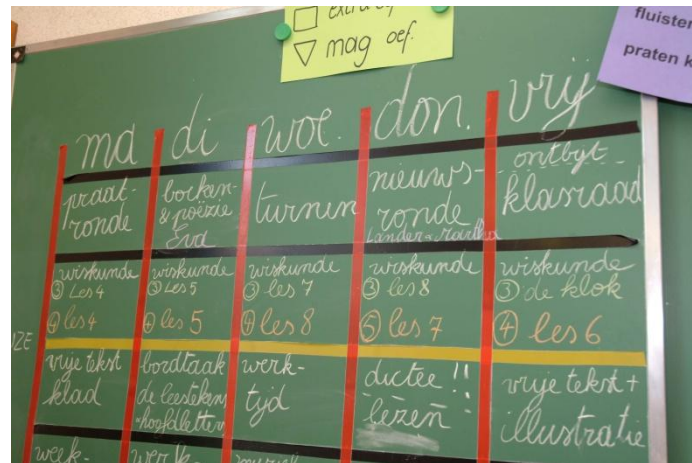 extra
▽ mag oef.
fluister
praten k
ma di woe. don. vrij
praat-
ronde
boeken-
& poëzie
Eva
turnen
nieuws-
ronde
Lander + Martha
ontbyt-
klasraad
wiskunde
③ Les 4
④ les 4
wiskunde
③ Les 5
④ les 5
wiskunde
③ les 7
④ les 8
wiskunde
③ les 8
⑤ les 7
wiskunde
③ de klok
④ les 6
ZE
vrije tekst
klad
bordtaak
de leestekens
+ hoofdletters
werk-
tyd
dictee !!
lezen
vrije tekst +
illustratie
week-
werk-